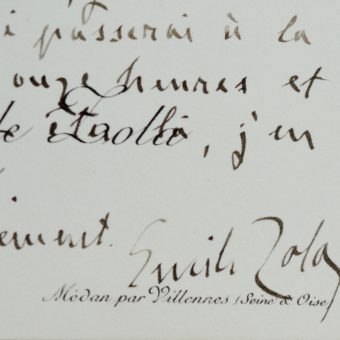 i passerai à la
onze heures et
là, j'en
ément.
Emile Zola
Médan par Villennes (Seine & Oise)